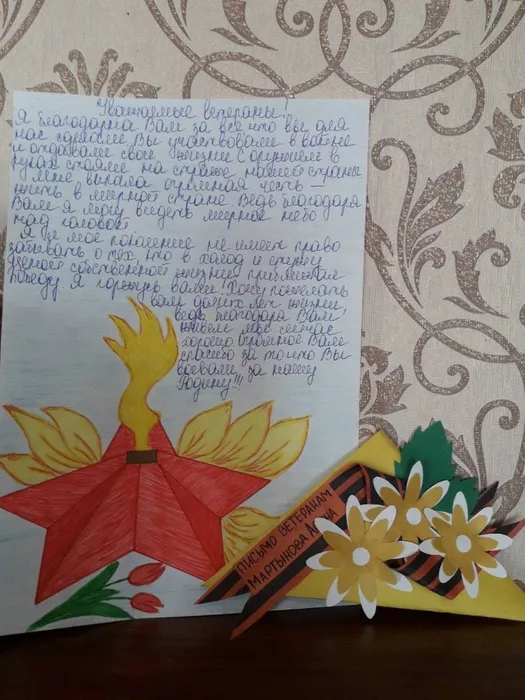 Уважаемые ветераны!
Я благодарна Вам за всё что вы для
нас сделали. Вы участвовали в войне
и отдавали свои жизни с оружием в
руках стояли на страже нашей страны
Мне выпала огромная честь —
жить в мирной стране. Ведь благодаря
Вам я могу видеть мирное небо
над головой.
Я и моё поколение не имеем право
забывать о тех, кто в холод и стужу
ценой собственной жизни приближал
победу. Я горжусь вами! Хочу пожелать
вам долгих лет жизни
ведь благодаря Вам!
живём мы сейчас
хорошо огромное Вам
спасибо за то что Вы
воевали за нашу
Родину!!!
ПИСЬМО ВЕТЕРАНАМ
МАРТЫНОВА